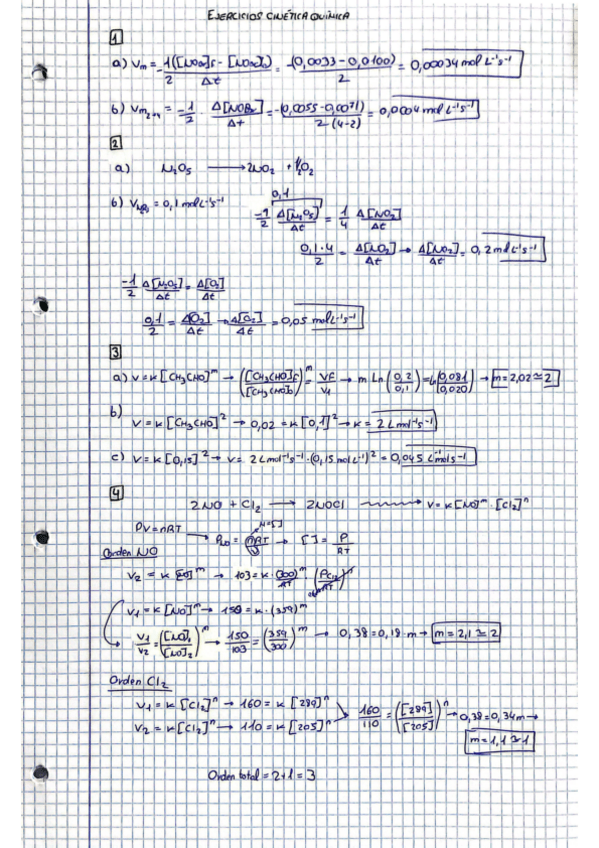 EJERCICIOS CINÉTICA QUÍMICA
1
a) Vm = -1/2 ([NOBr]5 - [NOBr]0)/Δt = -(0,0033 - 0,0100)/2 = 0,00034 mol L⁻¹s⁻¹
b) Vm2→4 = -1/2 · Δ[NOBr]/Δt = -(0,0055 - 0,0071)/2(4-2) = 0,0004 mol L⁻¹s⁻¹
2
a) N₂O₅ → 2NO₂ + ½O₂
b) VN₂O₅ = 0,1 mol L⁻¹s⁻¹
0,1
-1/2 Δ[N₂O₅]/Δt = 1/4 Δ[NO₂]/Δt
0,1·4/2 = Δ[NO₂]/Δt → Δ[NO₂]/Δt = 0,2 mol L⁻¹s⁻¹
-1/2 Δ[N₂O₅]/Δt = Δ[O₂]/Δt
0,1/2 = Δ[O₂]/Δt → Δ[O₂]/Δt = 0,05 mol L⁻¹s⁻¹
3
a) v = k[CH₃CHO]ᵐ → ([CH₃CHO]f/[CH₃CHO]0)ᵐ = Vf/V1 → m Ln(0,2/0,1) = Ln(0,081/0,020) → m = 2,02 ≃ 2
b)
v = k[CH₃CHO]² → 0,02 = k[0,1]² → k = 2 L mol⁻¹s⁻¹
c) v = k[0,15]² → v = 2 L mol⁻¹s⁻¹ · (0,15 mol L⁻¹)² = 0,045 L⁻¹mol s⁻¹
4
2NO + Cl₂ → 2NOCl → v = k[NO]ᵐ · [Cl₂]ⁿ
PV = nRT → = nRT → [ ] = P/RT
Orden NO
V₂ = k[NO]ᵐ → 103 = k · (300)ᵐ/RT
V₁ = k[NO]ᵐ → 150 = k · (359)ᵐ
V₁/V₂ = ([NO]₁/[NO]₂)ᵐ → 150/103 = (359/300)ᵐ → 0,38 = 0,18 m → m = 2,1 ≃ 2
Orden Cl₂
V₁ = k[Cl₂]ⁿ → 160 = k[289]ⁿ
V₂ = k[Cl₂]ⁿ → 110 = k[205]ⁿ
160/110 = ([289]/[205])ⁿ → 0,38 = 0,34m →
m = 1,1 ≃ 1
Orden total = 2+1 = 3